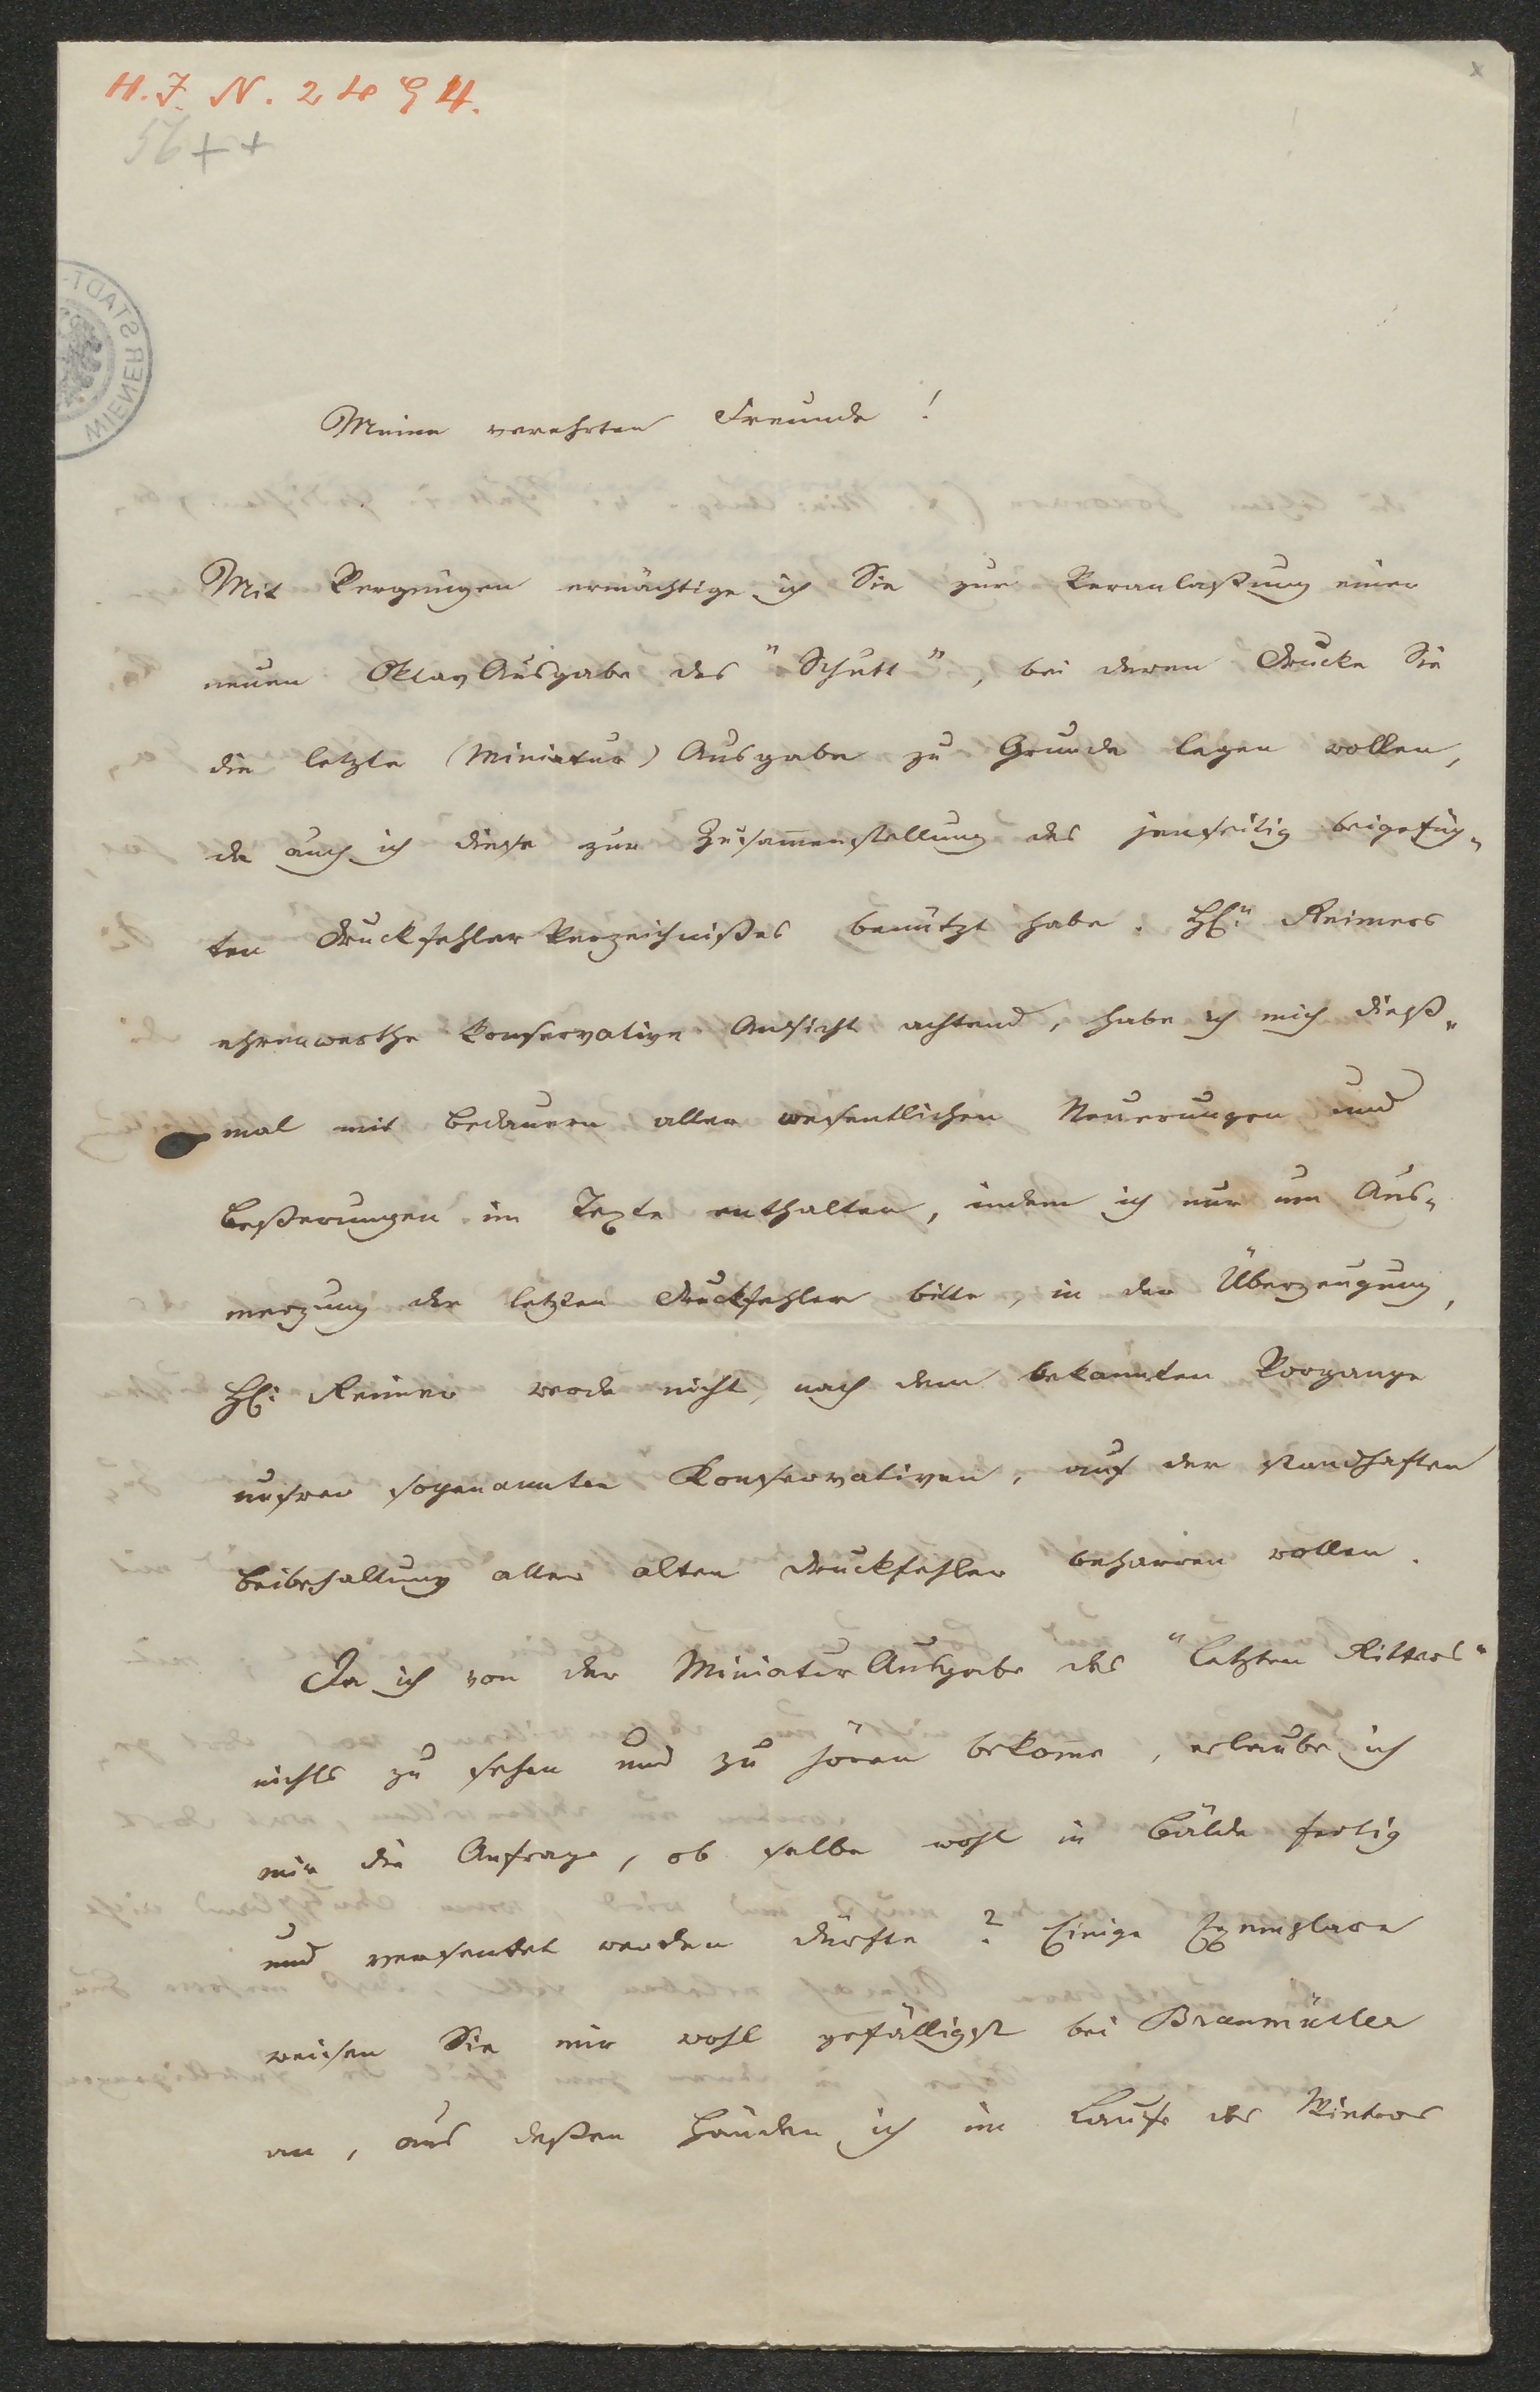 H. I. N. 2494.
56 ++
x
WIENER STADT-
Meine verehrten Freunde !
Mit Vergnügen ermächtige ich Sie zur Veranlaßung einer
neuen OktavAusgabe des "Schutt", bei deren Drucke Sie
die letzte (Miniatur) Ausgabe zu Grunde legen wollen,
da auch ich diese zur Zusam̅enstellung des jenseitig beigefüg„
ten Druckfehler Verzeichnißes benützt habe. Hℓ: Reimers
ehrenwerthe konservative Ansicht achtend, habe ich mich dieß„
mal mit Bedauern aller wesentlichen Neuerungen und
Beßerungen im Texte enthalten, indem ich nur um Aus„
merzung der letzten Druckfehler bitte, in der Überzeugung,
Hℓ: Reimer werde nicht, nach dem bekannten Vorgange
unsrer sogenannten Konservativen, auf der standhaften
Beibehaltung aller alten Druckfehler beharren wollen.
Da ich von der MiniaturAusgabe des "letzten Ritters"
nichts zu sehen und zu hören bekom̅e, erlaube ich
mir die Anfrage, ob selbe wohl in Bälde fertig
und versendet werden dürfte ? Einige Exemplare
weisen Sie mir wohl gefälligst bei Braumüller
an, aus deßen Händen ich im Laufe des Winters